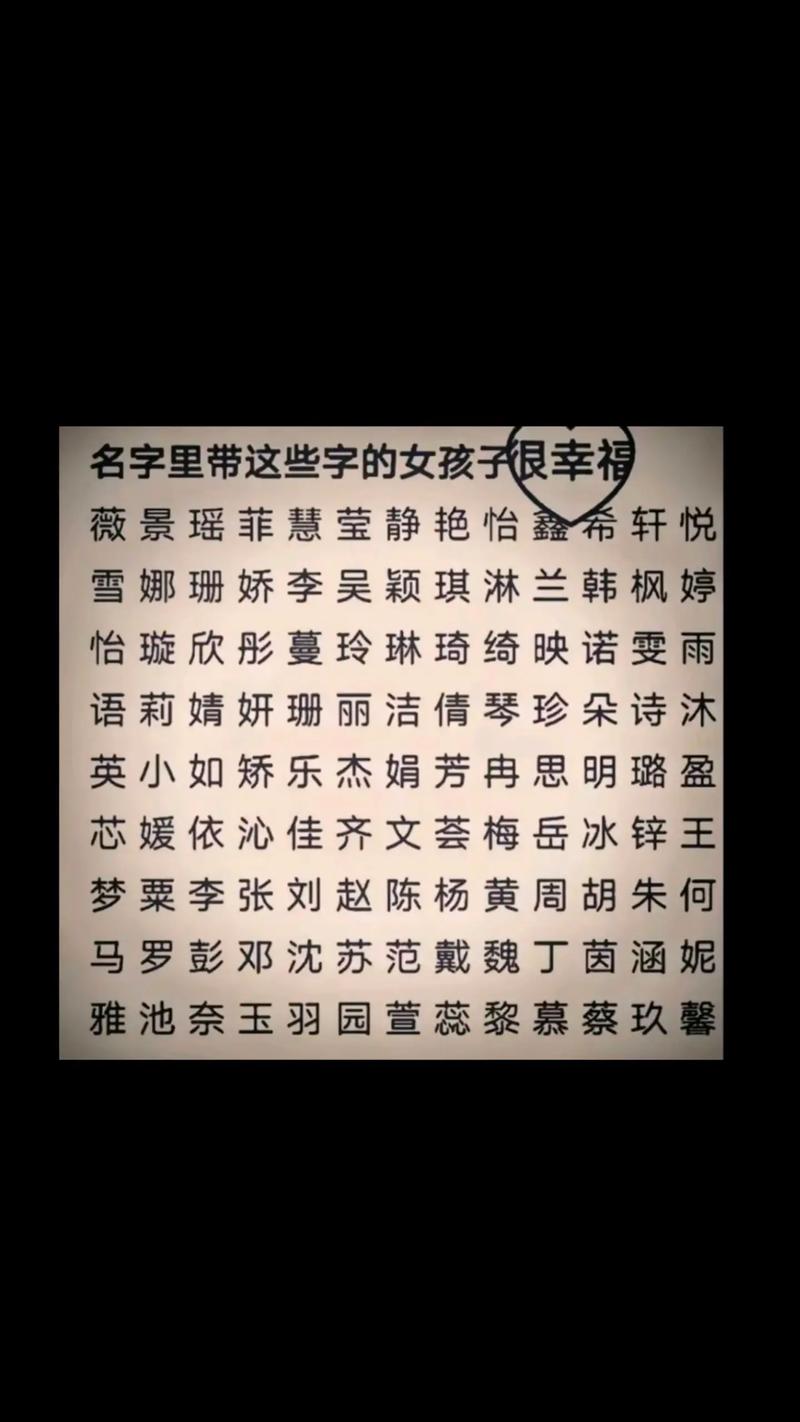 名字里带这些字的女孩子很幸福
薇景瑶菲慧莹静艳怡鑫希轩悦
雪娜珊娇李吴颖琪淋兰韩枫婷
怡璇欣彤蔓玲琳琦绮映诺雯雨
语莉婧妍珊丽洁倩琴珍朵诗沐
英小如矫乐杰娟芳冉思明璐盈
芯媛依沁佳齐文荟梅岳冰锌王
梦粟李张刘赵陈杨黄周胡朱何
马罗彭邓沈苏范戴魏丁茵涵妮
雅池奈玉羽园萱蕊黎慕蔡玖馨